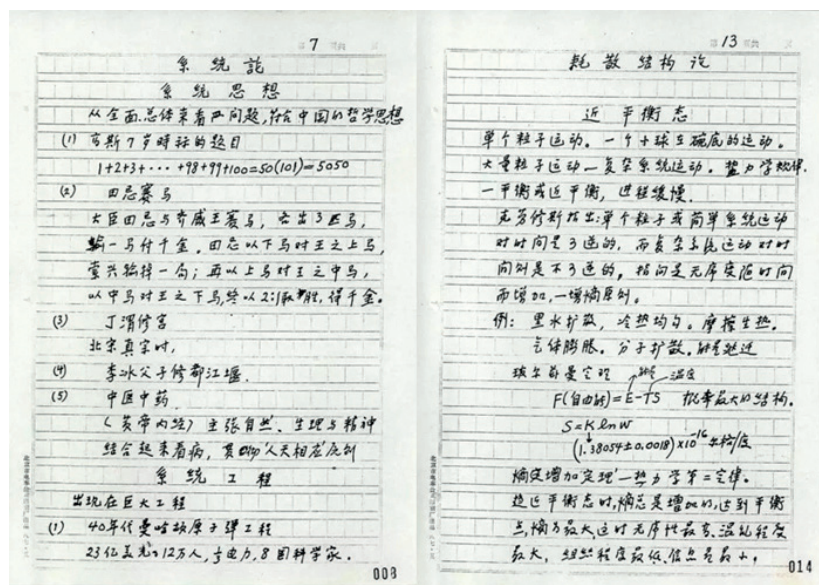 第 7 页
系统论
系统思想
从全面、总体来看 问题,符合中国的哲学思想
(1) 高斯7岁时 的题目
1+2+3+···+98+99+100=50(101)=5050
(2) 田忌赛马
大臣田忌与齐威王赛马,各出3匹马,
输一马付千金。田忌以下马对王之上马,
当然输掉一局;再以上马对王之中马,
以中马对王之下马,终以2:1取胜,得千金。
(3) 丁渭修宫
北宋真宗时,
(4) 李冰父子修都江堰.
(5) 中医中药
《黄帝内经》主张自然、生理与精神
结合起来看病,贯彻“人天相应”原则
系统工程
出现在巨大工程
(1) 40年代曼哈顿原子弹工程
23亿美元,12万人, 电力,8国科学家.
008
第 13 页
耗散结构论
近平衡态
单个粒子运动。一个小球在碗底的运动。
大量粒子运动—复杂系统运动。热力学规律.
—平衡或近平衡,进程缓慢.
克劳修斯指出:单个粒子或简单系统运动
对时间是可逆的,而复杂系统运动对时
间则是不可逆的,熵问是无序度随时间
而增加,—增熵原则。
例:墨水扩散,冷热均匀。摩擦生热.
气体膨胀。分子扩散。
玻尔兹曼定理 温度
F(自由能)=E-TS 概率最大的结构.
S=KlnW
(1.38054±0.0018)×10⁻¹⁶尔格/度
“熵定增加定理”—热力学第二定律。
趋近平衡态时,熵总是增加的,达到平衡
点,熵为最大,这时无序性最高、混乱程度
最大,组织程度最低,信息量最小。
014